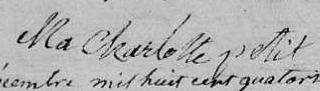 Ma Charlotte petit
écembre mil huit cent quators